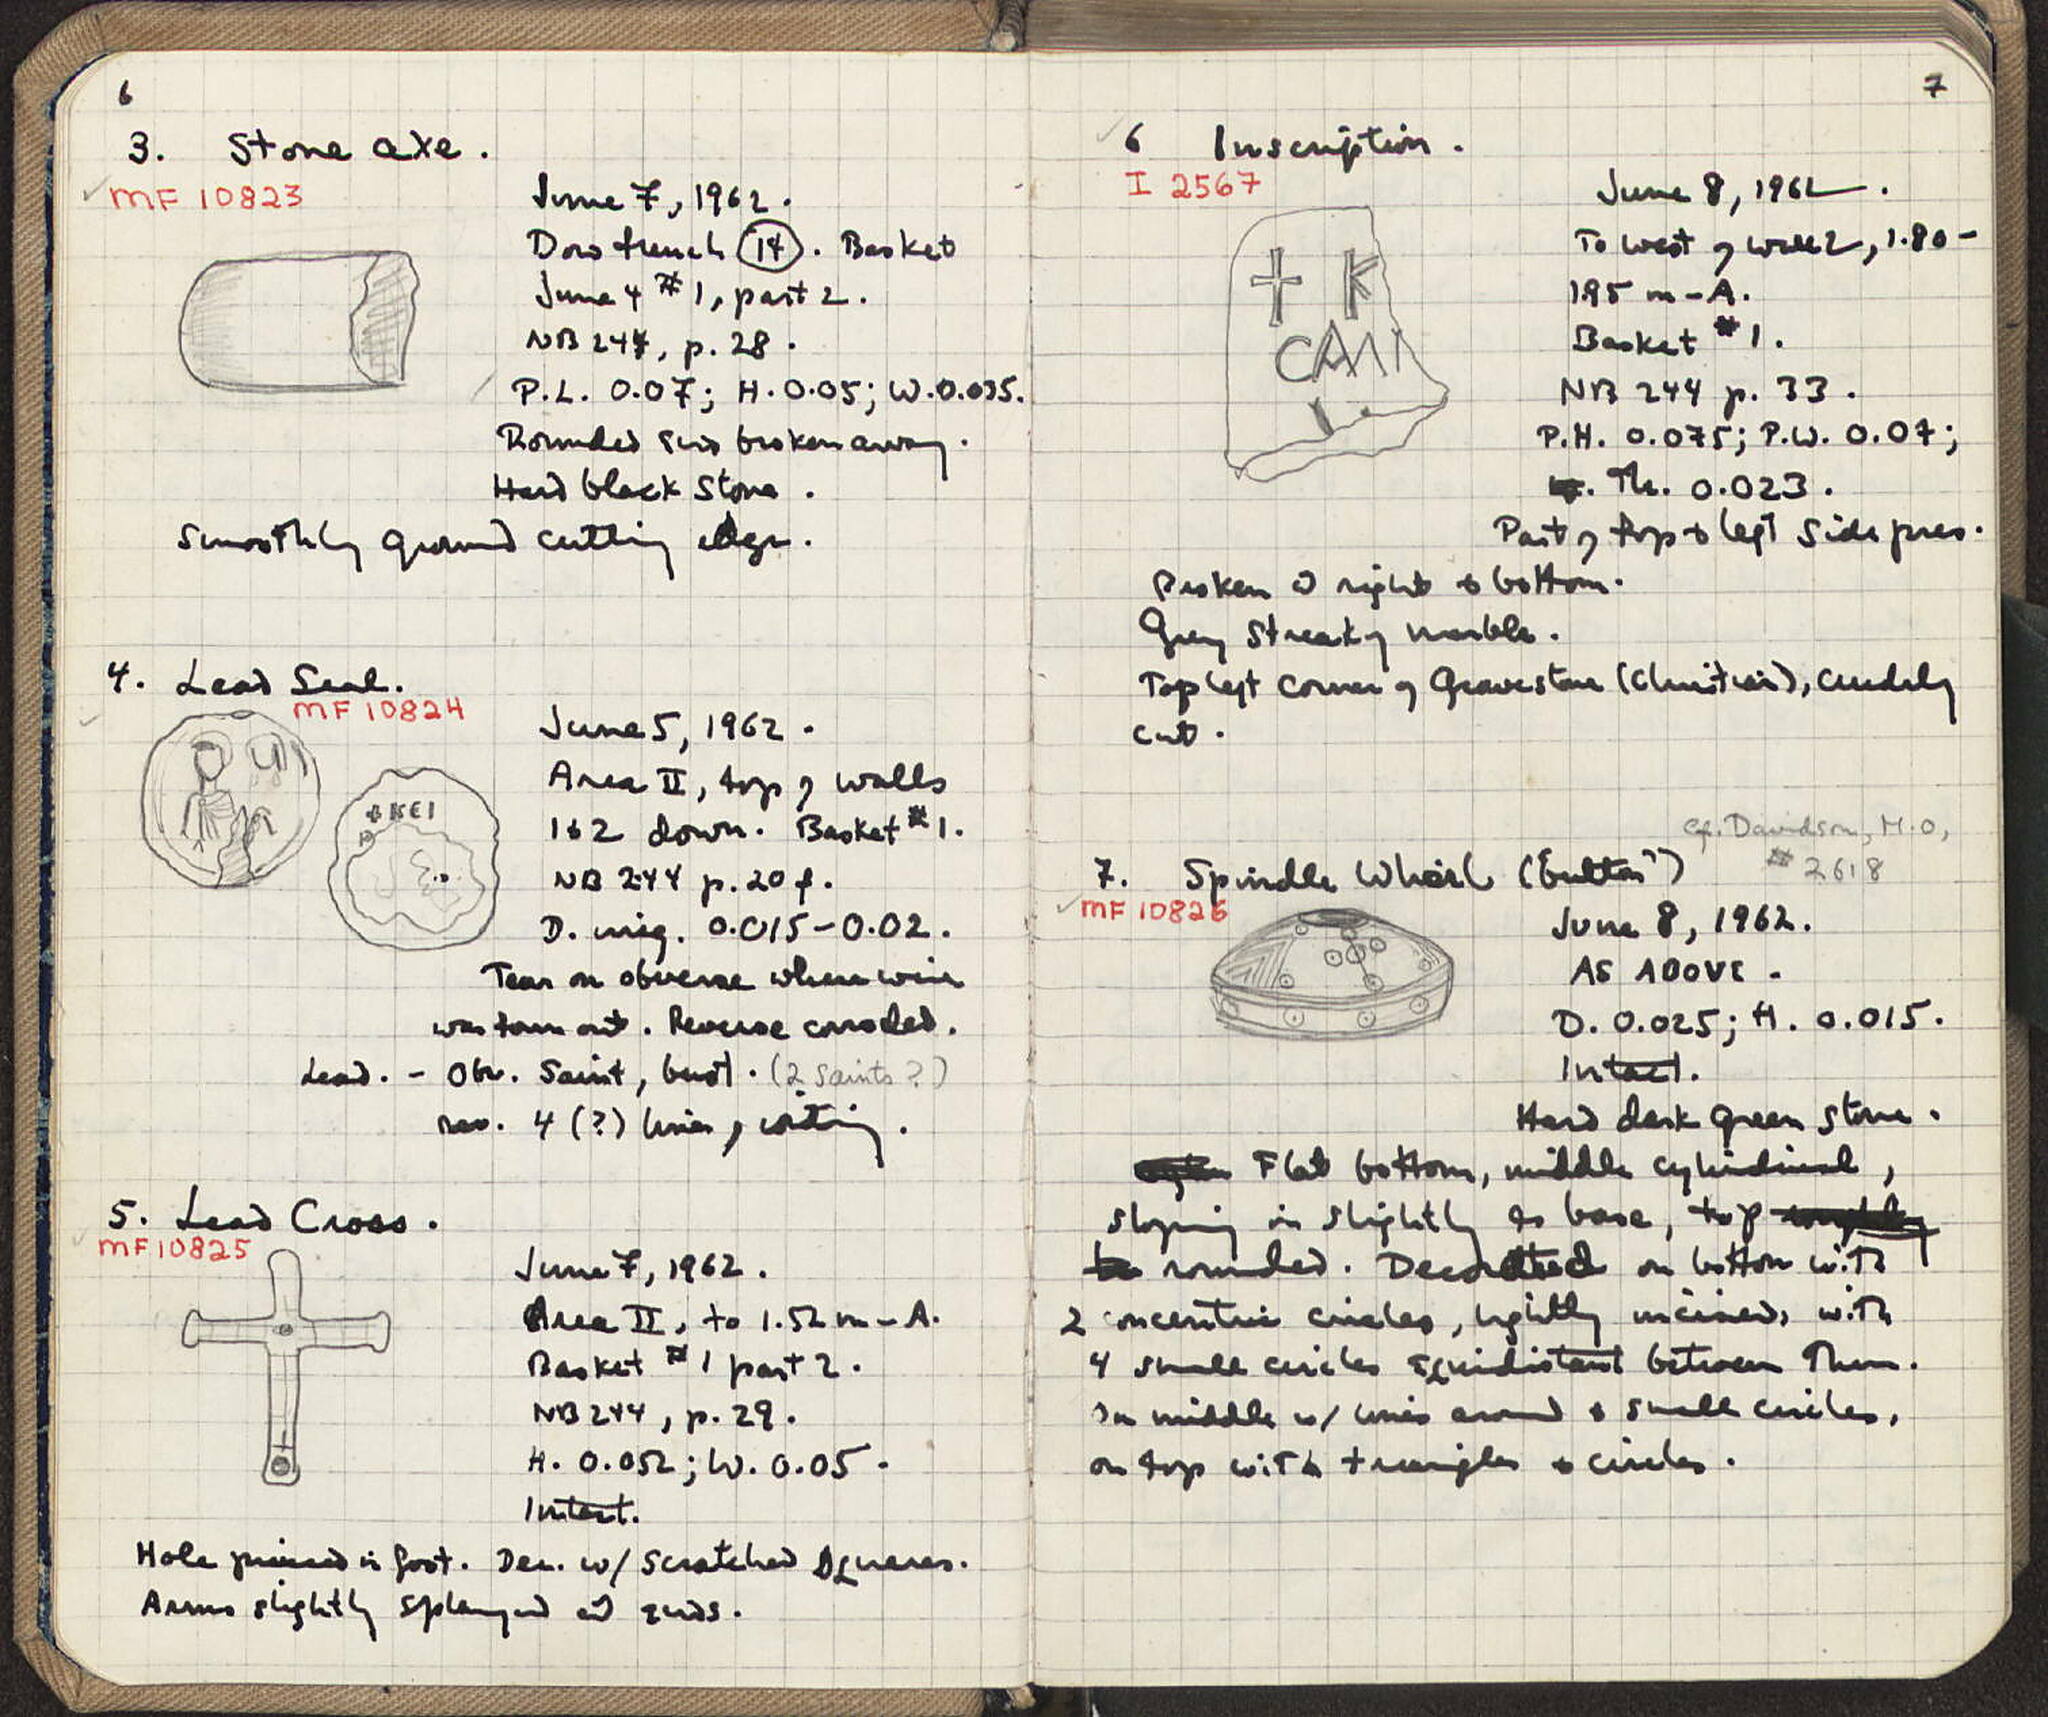 6
3. Stone axe.
MF 10823
June 7, 1962.
Dow trench 14. Basket
June 4 #1, part 2.
NB 244, p. 28.
P.L. 0.07; H. 0.05; W. 0.035.
Rounded end broken away.
Hard black stone.
Smoothly ground cutting edge.
4. Lead Seal.
MF 10824
June 5, 1962.
Area II, top of walls
1 & 2 down. Basket #1.
+ KEI
NB 244 p. 20 f.
D. mig. 0.015-0.02.
Tear on obverse where wire
was torn out. Reverse corroded.
Lead. - Obv. Saint, bust. (2 Saints?)
rev. 4 (?) lines of writing.
5. Lead Cross.
MF 10825
June 7, 1962.
Area II, to 1.52 m - A.
Basket #1 part 2.
NB 244, p. 29.
H. 0.052; W. 0.05.
Intact.
Hole pierced in foot. Dec. w/ scratched squares.
Arms slightly splayed at ends.
7
6 Inscription.
I 2567
June 8, 1962.
To west of wall 2, 1.80-
1.95 m - A.
+ K
CAII
Basket #1.
NB 244 p. 33.
P.H. 0.075; P.W. 0.07;
Th. 0.023.
Part of top & left side pres.
Broken at right & bottom.
Grey streaky marble.
Top left corner of gravestone (Christian), crudely
cut.
cf. Davidson, M.O,
# 2618
7. Spindle Whorl ("button")
MF 10826
June 8, 1962.
AS ABOVE.
D. 0.025; H. 0.015.
Intact.
Hard dark green stone.
Flat bottom, middle cylindrical,
sloping in slightly to base, top
rounded. Decorated on bottom with
2 concentric circles, lightly incised, with
4 small circles equidistant between them.
In middle w/ lines around & small circles,
on top with triangles & circles.